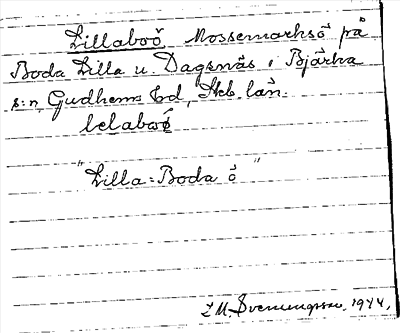 Lillaboö Mossemarksö på
Boda Lilla u. Dagsnäs i Bjärka
s:n, Gudhems hd, Skb. län.
lelaboö
"Lilla-Boda ö"
Svenungsson, 1944,